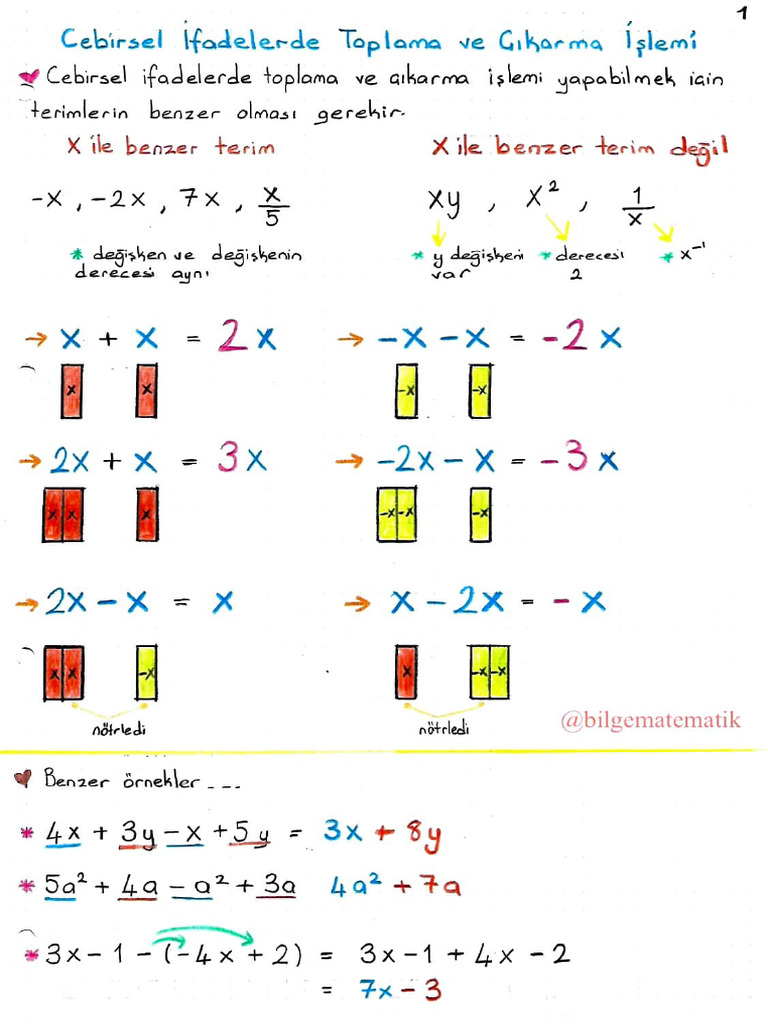 1
Cebirsel İfadelerde Toplama ve Çıkarma İşlemi
Cebirsel ifadelerde toplama ve çıkarma işlemi yapabilmek için
terimlerin benzer olması gerekir.
X ile benzer terim
-x , -2x , 7x , x/5
* değişken ve değişkenin
derecesi aynı
X ile benzer terim değil
xy , x² , 1/x
* y değişkeni var
* derecesi 2
* x⁻¹
→ x + x = 2x
x x
→ -x - x = -2x
-x -x
→ 2x + x = 3x
x x x
→ -2x - x = -3x
-x -x -x
→ 2x - x = x
x x -x
nötrledi
→ x - 2x = - x
x -x -x
nötrledi
@bilgematematik
Benzer örnekler ---
* 4x + 3y - x + 5y = 3x + 8y
* 5a² + 4a - a² + 3a 4a² + 7a
* 3x - 1 - (-4x + 2) = 3x - 1 + 4x - 2
= 7x - 3